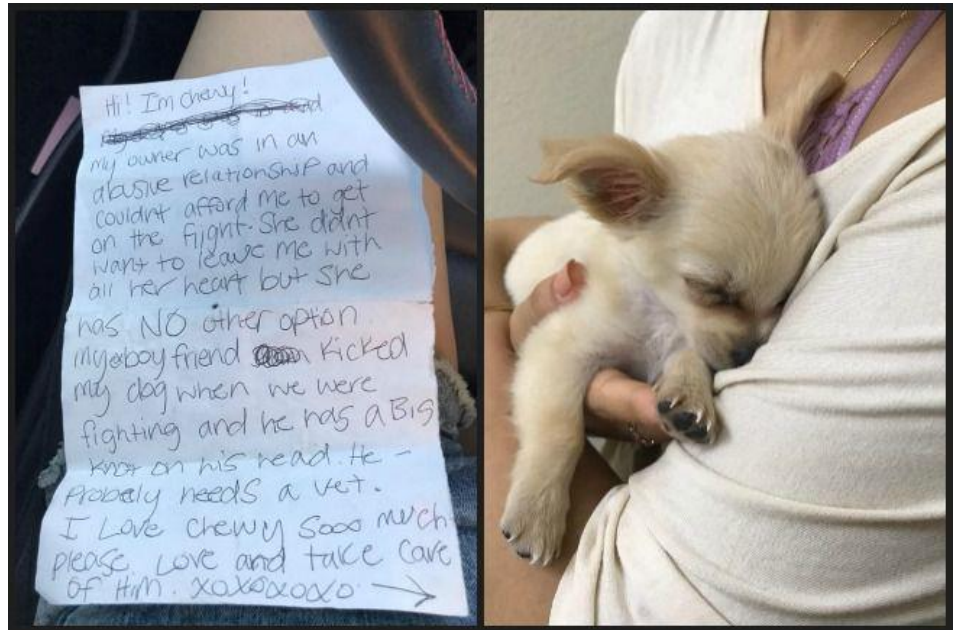 Hi! I'm chewy!
my owner was in an
abusive relationship and
couldnt afford me to get
on the flight. She didnt
want to leave me with
all her heart but she
has NO other option
my ex boyfriend kicked
my dog when we were
fighting and he has a BIG
knot on his head. He -
Probaly needs a vet.
I Love Chewy Sooo much
please Love and take care
of Him. xoxoxoxo →